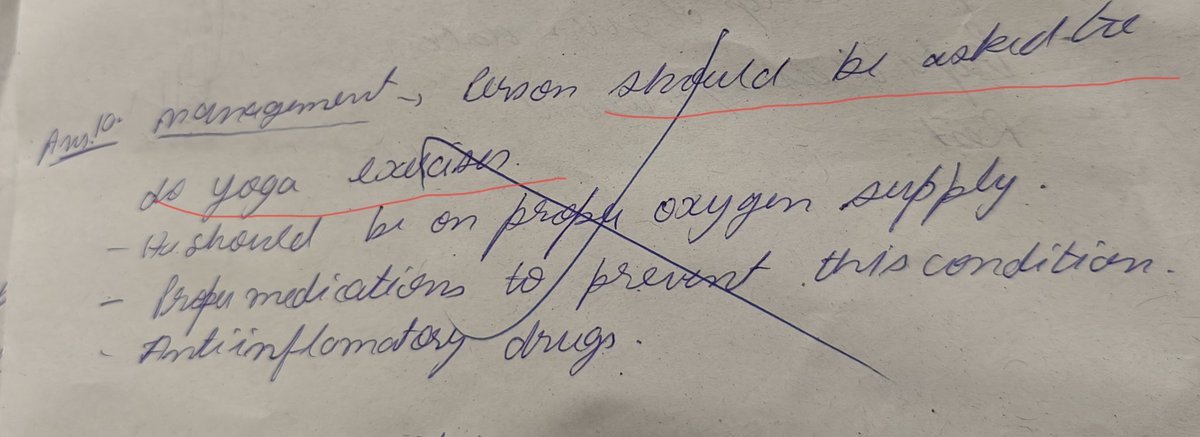 Ans.10. management → Person should be asked to
do yoga exercises.
- He should be on proper oxygen supply.
- Proper medications to prevent this condition.
- Antiinflamatory drugs.